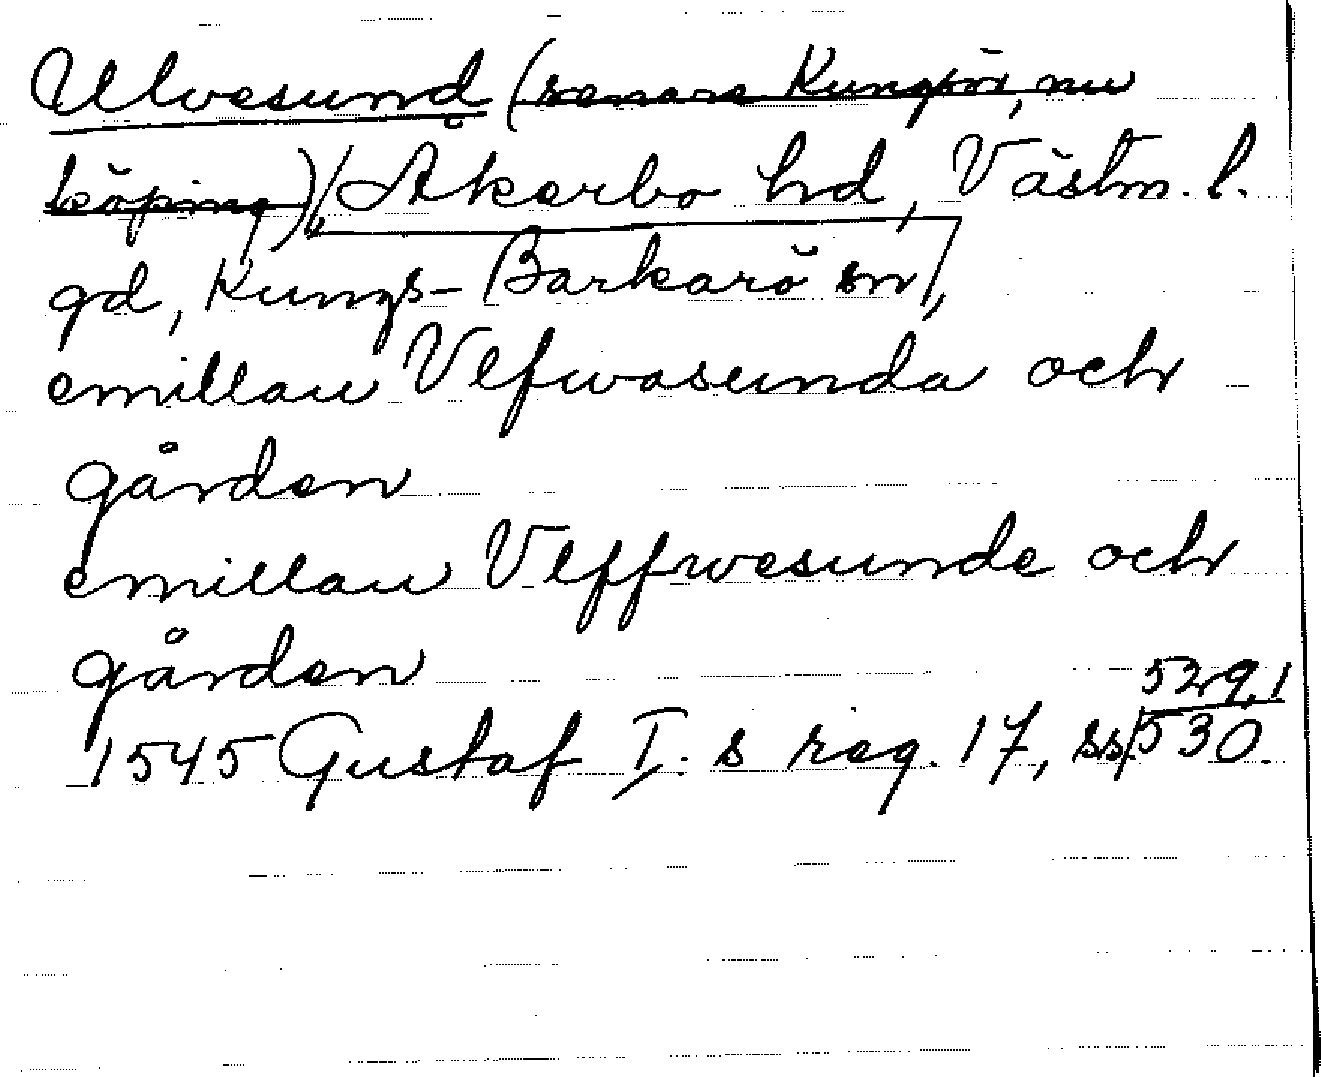 Ulvesund (senare Kungsör, nu
köping), Åkerbo hd, Västm. l.
gd, Kungs-Barkarö sn,
emillan Vlfwasunda och
gården
emillan Vlffwesunde och
gården
1545 Gustaf I. s reg. 17, ss. 529, 530.